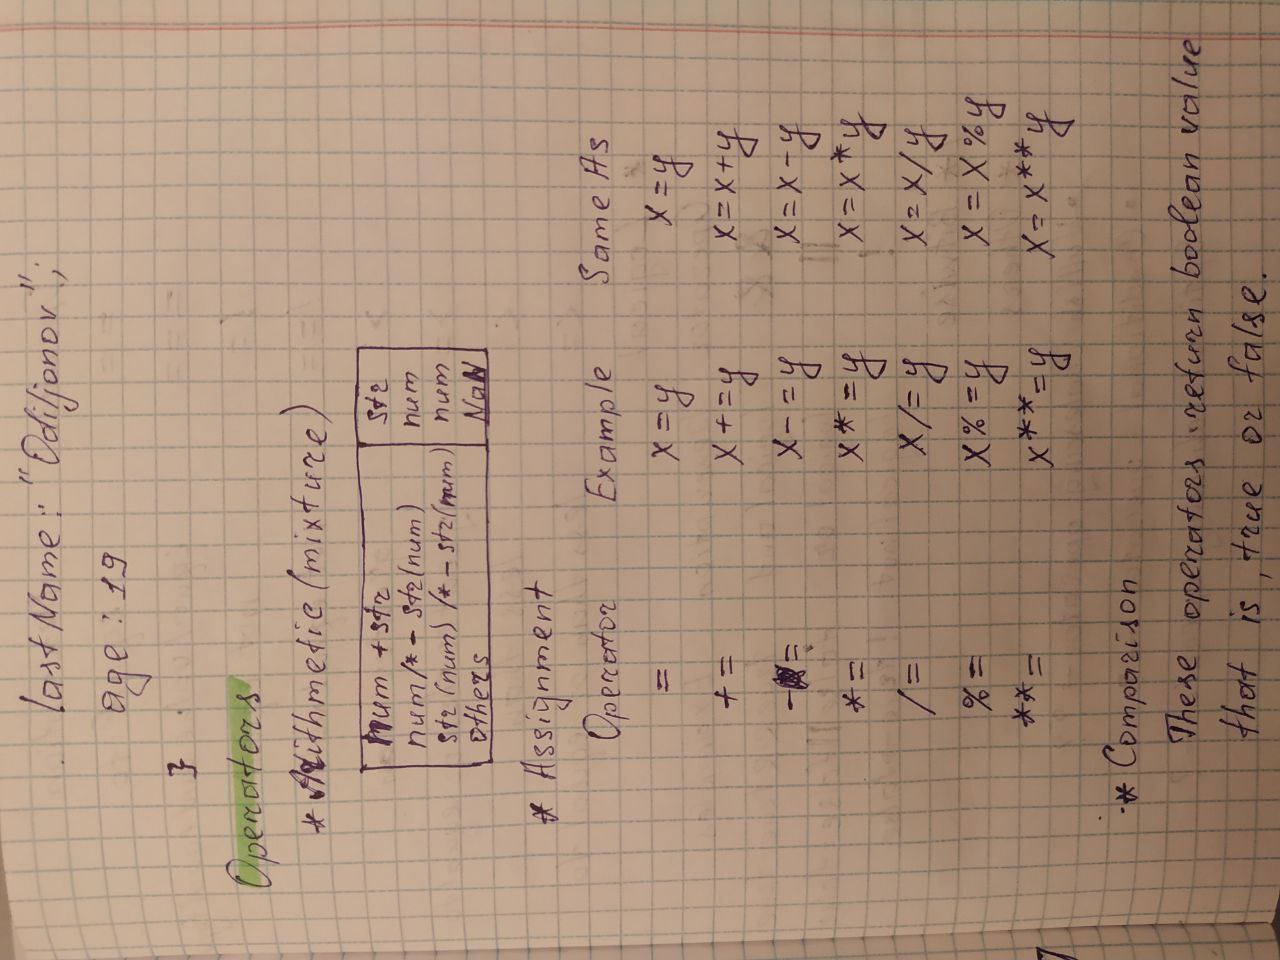 Last Name: "Odiljonov";
age : 19
}
Operators
* Arithmetic (mixture)
num + str str
num /* - str(num) num
str(num) /* - str(num) num
others NaN
* Assignment
Operator Example Same As
= x = y x = y
+= x += y x = x + y
-= x -= y x = x - y
*= x *= y x = x * y
/= x /= y x = x / y
%= x %= y x = x % y
**= x **= y x = x ** y
* Comparison
These operators return boolean value
that is, true or false.